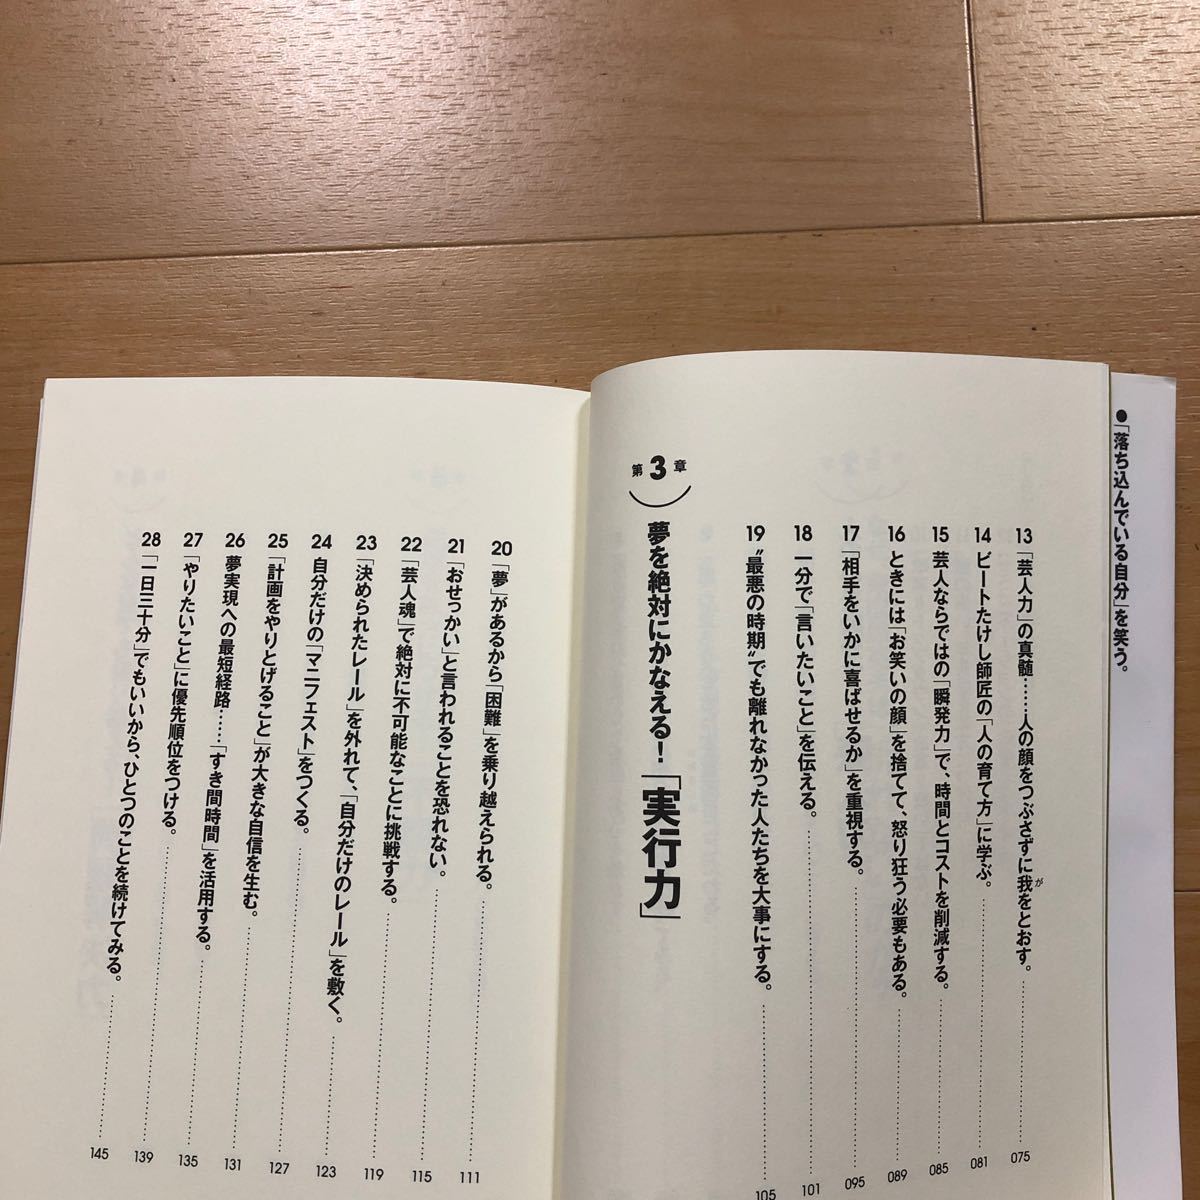 ●「落ち込んでいる自分」を笑う。
13 「芸人力」の真髄……人の顔をつぶさずに我をとおす。 075
が
14 ビートたけし師匠の「人の育て方」に学ぶ。 081
15 芸人ならではの「瞬発力」で、時間とコストを削減する。 085
16 ときには「お笑いの顔」を捨てて、怒り狂う必要もある。 089
17 「相手をいかに喜ばせるか」を重視する。 095
18 一分で「言いたいこと」を伝える。 101
19 〝最悪の時期〟でも離れなかった人たちを大事にする。 105
第3章
夢を絶対にかなえる!「実行力」
20 「夢」があるから「困難」を乗り越えられる。 111
21 「おせっかい」と言われることを恐れない。 115
22 「芸人魂」で絶対に不可能なことに挑戦する。 119
23 「決められたレール」を外れて、「自分だけのレール」を敷く。 123
24 自分だけの「マニフェスト」をつくる。 127
25 「計画をやりとげること」が大きな自信を生む。 131
26 夢実現への最短経路……「すき間時間」を活用する。 135
27 「やりたいこと」に優先順位をつける。 139
28 「一日三十分」でもいいから、ひとつのことを続けてみる。 145